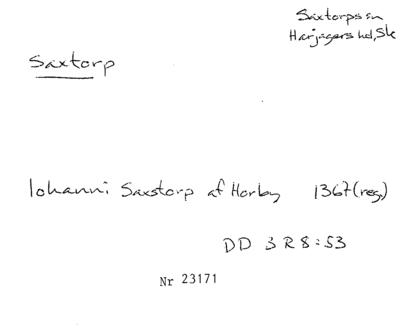 Saxtorps sn
Harjagers hd, Sk
Saxtorp
Iohanni Saxstorp af Horby 1367 (reg.)
DD 3 R 8:53
Nr 23171